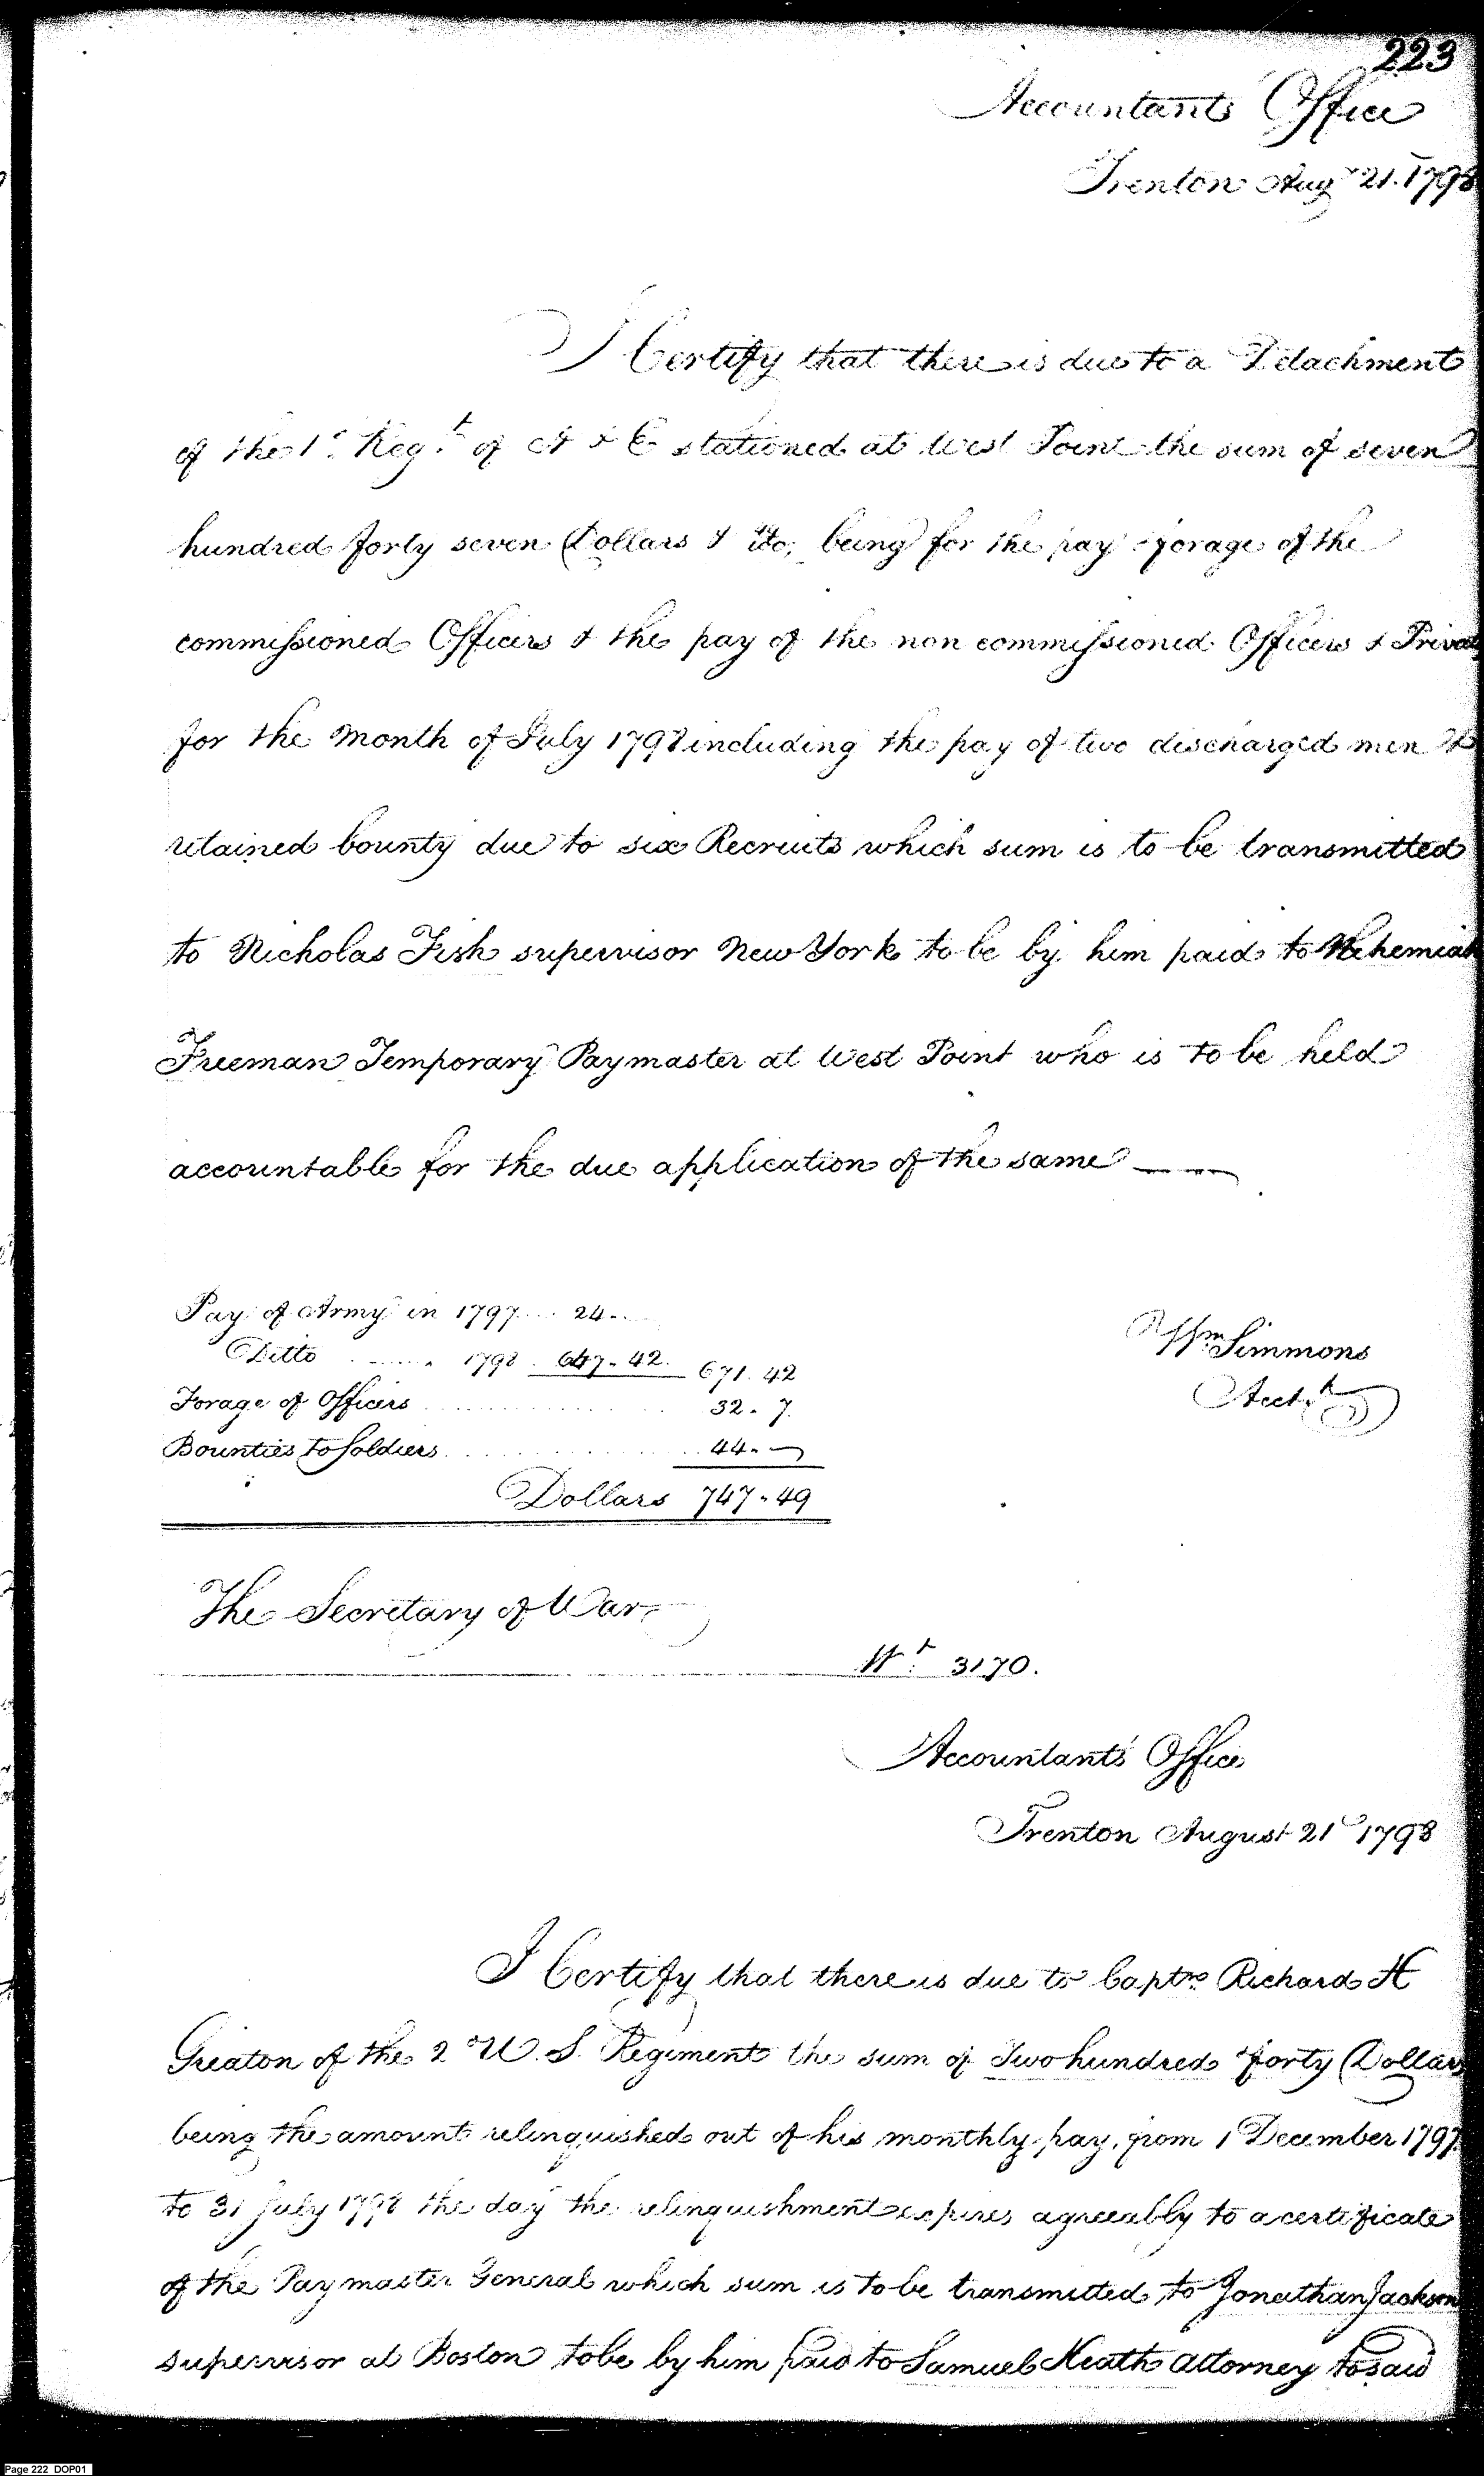 223
Accountants Office
Trenton Augt 21. 1798
I Certify that there is due to a Detachment
of the 1st Regt of A & E stationed at West Point the sum of seven
hundred forty seven Dollars & 49/100 being for the pay & forage of the
commissioned Officers & the pay of the non commissioned Officers & Privat
for the Month of July 1798 including the pay of two discharged men &
retained bounty due to six Recruits which sum is to be transmitted
to Nicholas Fish supervisor New York to be by him paid to Nehemiah
Freeman Temporary Paymaster at West Point who is to be held
accountable for the due application of the same
Pay of Army in 1797 .... 24 ..
Ditto ...... 1798 . 647 . 42. 671. 42
Forage of Officers .......... 32 . 7.
Bounties to Soldiers .......... 44 . -
Dollars 747 . 49
Wm Simmons
Acctt
The Secretary of War
Wt 3170.
Accountants Office
Trenton August 21st 1798
I Certify that there is due to Captn Richard H
Greaton of the 2 U. S. Regiment the sum of Two hundred forty Dollars
being the amount relinquished out of his monthly pay, from 1 December 1797
to 31 July 1798 the day the relinquishment expires agreeably to a certificate
of the Paymaster General which sum is to be transmitted to Jonathan Jackson
supervisor at Boston to be by him paid to Samuel Heath Attorney to said
Page 222 DOP01